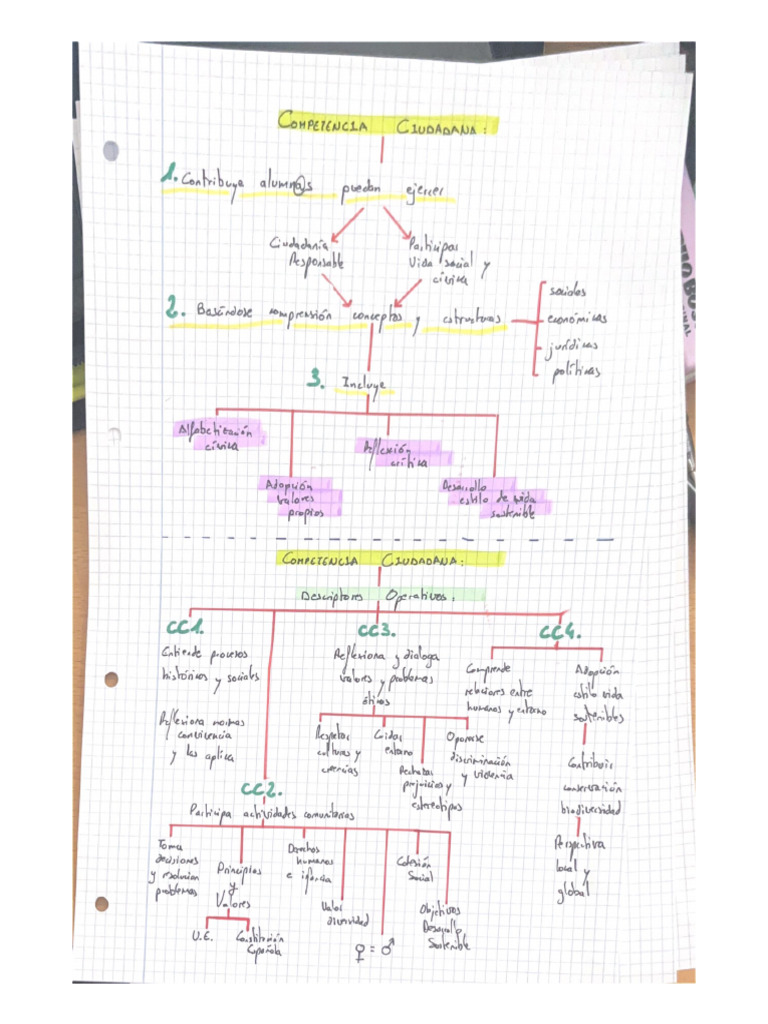 COMPETENCIA CIUDADANA:
1. Contribuye alumn@s puedan ejercer
Ciudadanía
Responsable
Participar
Vida social y
cívica
2. Basándose comprensión conceptos y estructuras
sociales
económicas
jurídicas
políticas
3. Incluye
Alfabetización
cívica
Adopción
valores
propios
Reflexión
crítica
Desarrollo
estilo de vida
sostenible
COMPETENCIA CIUDADANA:
Descriptores Operativos:
CC1.
Entiende procesos
históricos y sociales
Reflexiona normas
convivencia
y las aplica
CC2.
Participa actividades comunitarias
Toma
decisiones
y resolución
problemas
Principios
y
Valores
U.E.
Constitución
Española
Derechos
humanos
e infancia
Valor
diversidad
♀ = ♂
Cohesión
Social
Objetivos
Desarrollo
Sostenible
CC3.
Reflexiona y dialoga
valores y problemas
éticos
Respetar
culturas y
creencias
Cuidar
entorno
Rechazar
prejuicios y
estereotipos
Oponerse
discriminación
y violencia
CC4.
Comprende
relaciones entre
humanos y entorno
Adopción
estilo vida
sostenibles
Contribuir
conservación
biodiversidad
Perspectiva
local y
global